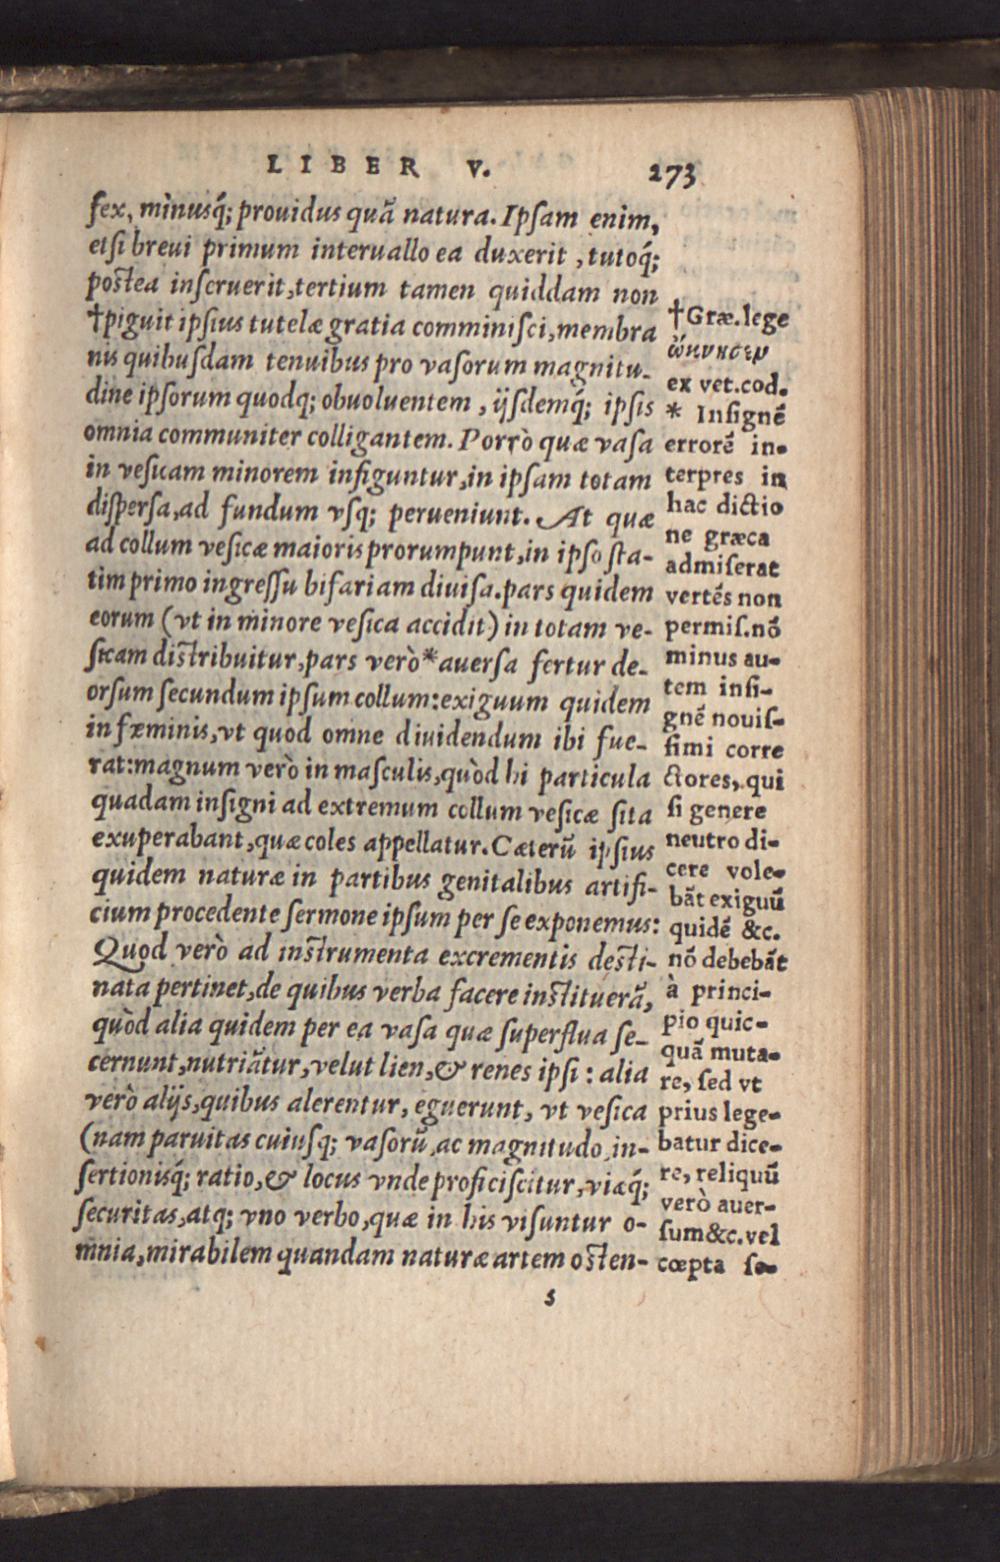 LIBER V. 273
fex, minusq́; prouidus quã natura. Ipſam enim,
etſi breui primum interuallo ea duxerit, tutoq́;
poſtea inſeruerit, tertium tamen quiddam non
†piguit ipſius tutelæ gratia comminiſci, membra
nis quibuſdam tenuibus pro vaſorum magnitu-
dine ipſorum quodq; obuoluentem, ijſdemq́; ipſis
omnia communiter colligantem. Porrò quæ vaſa
in veſicam minorem infiguntur, in ipſam totam
diſperſa, ad fundum vſq; perueniunt. At quæ
ad collum veſicæ maioris prorumpunt, in ipſo ſta-
tim primo ingreſſu bifariam diuiſa. pars quidem
eorum (vt in minore veſica accidit) in totam ve-
ſicam diſtribuitur, pars verò * auerſa fertur de-
orſum ſecundum ipſum collum: exiguum quidem
in fœminis, vt quod omne diuidendum ibi fue-
rat: magnum verò in maſculis, quòd hi particula
quadam inſigni ad extremum collum veſicæ ſita
exuperabant, quæ coles appellatur. Cæterũ ipſius
quidem naturæ in partibus genitalibus artifi-
cium procedente ſermone ipſum per ſe exponemus:
Quod verò ad inſtrumenta excrementis deſti-
nata pertinet, de quibus verba facere inſtituerã,
quòd alia quidem per ea vaſa quæ ſuperflua ſe-
cernunt, nutriãtur, velut lien, & renes ipſi: alia
verò alijs, quibus alerentur, eguerunt, vt veſica
(nam paruitas cuiuſq; vaſorũ, ac magnitudo, in-
ſertionisq́; ratio, & locus vnde proficiſcitur, viæq́;
ſecuritas, atq; vno verbo, quæ in his viſuntur o-
mnia, mirabilem quandam naturæ artem oſten-
†Græ. lege
ὤκνησεν
ex vet. cod.
* Inſignẽ
errorẽ in-
terpres in
hac dictio
ne græca
admiſerat
vertẽs non
permiſ. nõ
minus au-
tem inſi-
gnẽ nouiſ-
ſimi corre
ctores, qui
ſi genere
neutro di-
cere vole-
bãt exiguũ
quidẽ &c.
nõ debebãt
à princi-
pio quic-
quã muta-
re, ſed vt
prius lege-
batur dice-
re, reliquũ
verò auer-
ſum &c. vel
cœpta ſe-
s